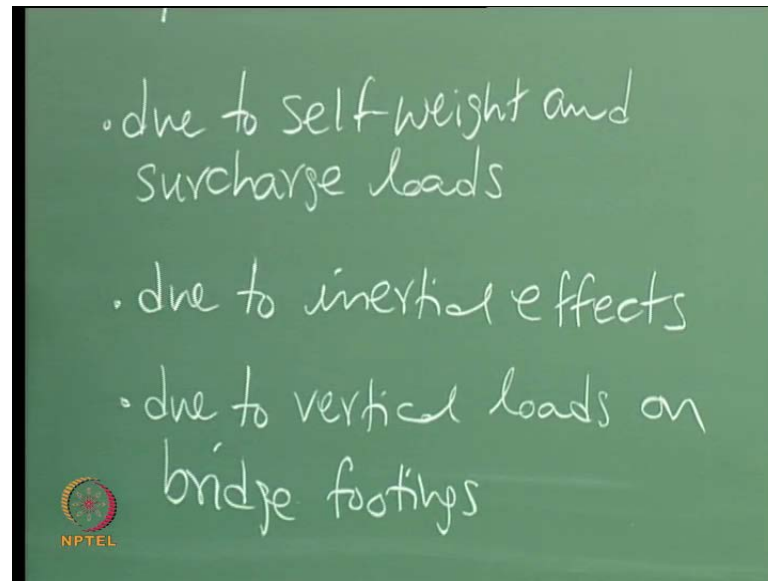 • due to self-weight and
surcharge loads
• due to inertial effects
• due to vertical loads on
bridge footings
NPTEL